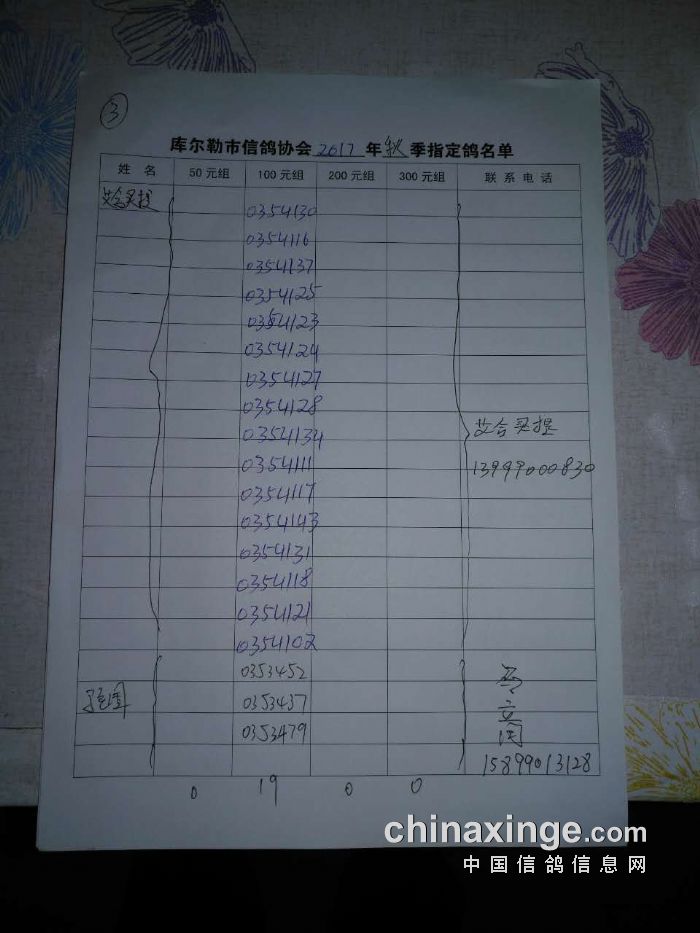 ③
库尔勒市信鸽协会 2017 年 秋 季指定鸽名单
姓 名 50元组 100元组 200元组 300元组 联系电话
艾合买提 0354130
0354116
0354137
0354125
0354123
0354124
0354127
0354128
0354134 艾合买提
0354111 13999000830
0354117
0354143
0354131
0354118
0354121
0354102
0353452
0353437
0353479
15899013128
0 19 0 0
chinaxinge.com
中国信鸽信息网